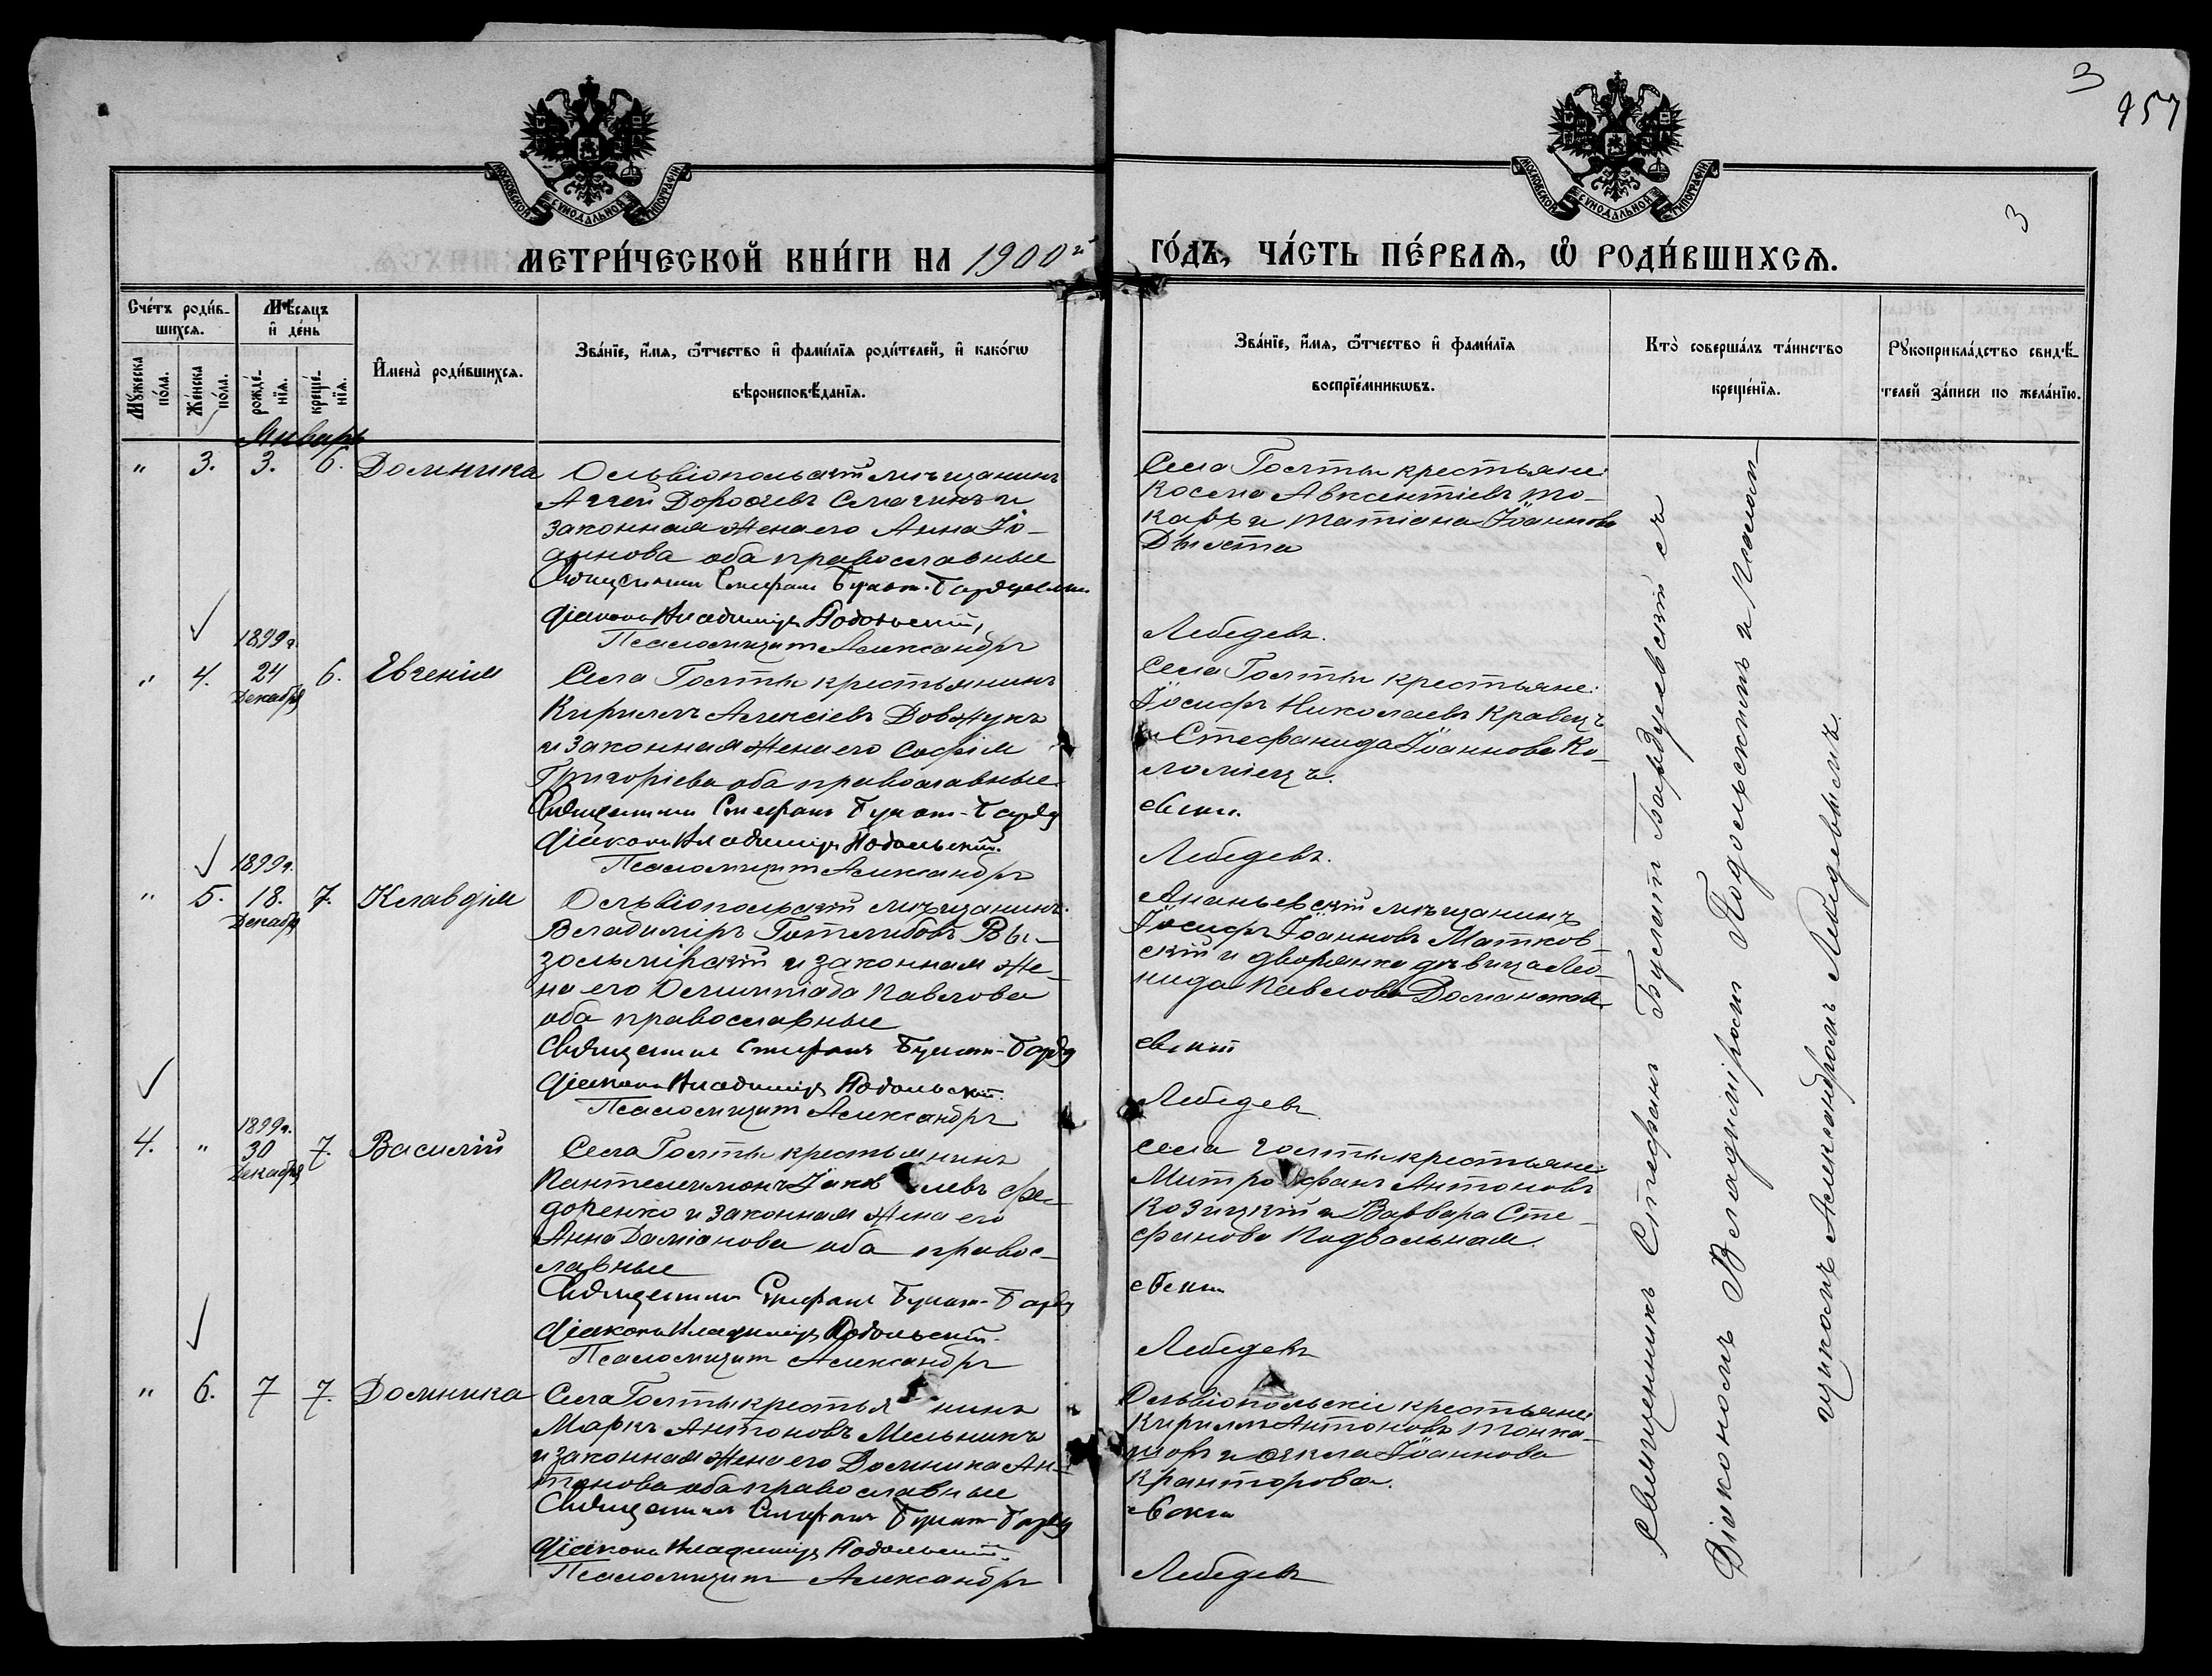 3
957
МОСКОВСКОЙ СѴНОДАЛЬНОЙ ТИПОГРАФІИ
МОСКОВСКОЙ СѴНОДАЛЬНОЙ ТИПОГРАФІИ
3
МЕТРИ́ЧЕСКОЙ КНИ́ГИ НА 1900й
ГО́ДЪ, ЧА́СТЬ ПЕ́РВАѦ, Ѡ҆ РОДИ́ВШИХСѦ.
Сче́тъ роди́в-
шихсѧ.
Мꙋ́жеска
по́ла.
Же́нска
по́ла.
Мѣ́сѧцъ
и҆ де́нь
рожде́-
нїѧ.
креще́-
нїѧ.
И҆мена̀ роди́вшихсѧ.
Зва́нїе, и҆́мѧ, ѻ҆́тчество и҆ фами́лїѧ роди́телей, и҆ како́гѡ
вѣроисповѣ́данїѧ.
Зва́нїе, и҆́мѧ, ѻ҆́тчество и҆ фами́лїѧ
воспрїе́мникѡвъ.
Кто̀ соверша́лъ та́инство
креще́нїѧ.
Рꙋкоприкла́дство свидѣ́-
телей за́писи по жела́нїю.
Январь
" 3. 3. 6. Домника
Ольвіопольскій мѣщанинъ
Аггей Дороѳеевъ Смагинъ и
законная жена его Анна Іо-
аннова оба православные
Священникъ Стефанъ Булат-Бардуелски.
Діаконъ Владиміръ Подольскій,
Псаломщикъ Александръ
Села Голты крестьяне:
Косма Авксентіевъ То-
каръ и Татіана Іоаннова
Лебедевъ.
" 4. 1899г. 24 Декабря 6. Евгенія
Села Голты крестьянинъ
Кириллъ Алексіевъ Довжукъ
и законная жена его Софія
Григоріева оба православные.
Священникъ Стефанъ Булат-Барду
Діаконъ Владиміръ Подольскій.
Псаломщикъ Александръ
Села Голты крестьяне:
Іосифъ Николаевъ Кравецъ
и Стефанида Іоаннова Ко-
ломіецъ.
Лебедевъ.
" 5. 1899г. 18. Декабря 7. Клавдія
Ольвіопольскій мѣщанинъ
Владиміръ Готлибовъ Вы-
зольмірскій и законная же-
на его Олимпіада Павлова
оба православные
Священникъ Стефанъ Булат-Барду
Діаконъ Владиміръ Подольскій.
Псаломщикъ Александръ
Ананьевскій мѣщанинъ
Іосифъ Іоанновъ Матков-
скій и дворянка дѣвица Лео-
нида Павлова Доманская
Лебедевъ
4. " 1899г. 30 Декабря 7. Василій
Села Голты крестьянинъ
Пантелеимонъ Іаковлевъ Фе-
доренко и законная жена его
Анна Даміанова оба правос-
лавные
Священникъ Стефанъ Булат-Барду
Діаконъ Владиміръ Подольскій.
Псаломщикъ Александръ
Села Голты крестьяне:
Митрофанъ Антоновъ
Козицкій и Варвара Сте-
фанова Подвальная.
Лебедевъ
" 6. 7 7. Домника
Села Голты крестьянинъ
Маркъ Антоновъ Мельникъ
и законная жена его Домника Ан-
тонова оба православные
Священникъ Стефанъ Булат-Барду
Діаконъ Владиміръ Подольскій.
Псаломщикъ Александръ
Ольвіопольскіе крестьяне:
Кириллъ Антоновъ Тонка-
шоръ и Ѳекла Іоаннова
Кранторова.
Лебедевъ
Священникъ Стефанъ Булатъ Бардуелевскій съ
Діакономъ Владиміромъ Подольскимъ и Псалом-
щикомъ Александромъ Лебедевымъ.